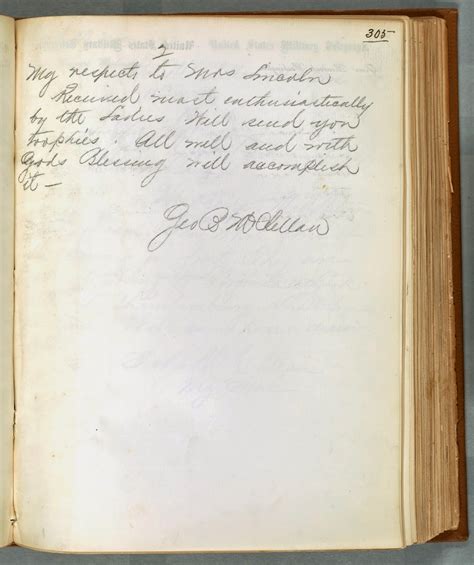 305
2
My respects to Mrs Lincoln
Received most enthusiastically
by the Ladies Will send you
trophies. All well and with
Gods Blessing will accomplish
it —
Geo B McClellan